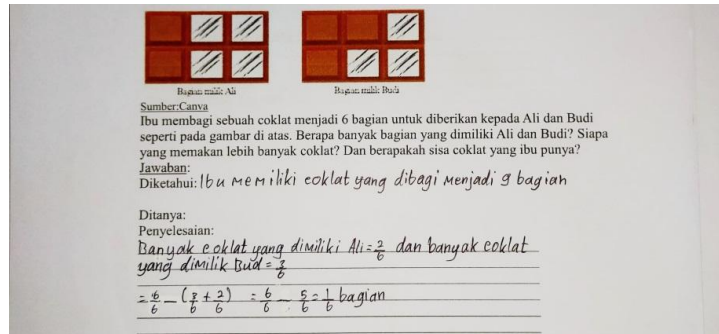 Bagian milik Ali Bagian milik Budi
Sumber:Canva
Ibu membagi sebuah coklat menjadi 6 bagian untuk diberikan kepada Ali dan Budi
seperti pada gambar di atas. Berapa banyak bagian yang dimiliki Ali dan Budi? Siapa
yang memakan lebih banyak coklat? Dan berapakah sisa coklat yang ibu punya?
Jawaban:
Diketahui: Ibu memiliki coklat yang dibagi menjadi 9 bagian
Ditanya:
Penyelesaian:
Banyak coklat yang dimiliki Ali = 2/6 dan banyak coklat
yang dimilik Bud = 3/6
= 6/6 - (3/6 + 2/6) = 6/6 - 5/6 = 1/6 bagian